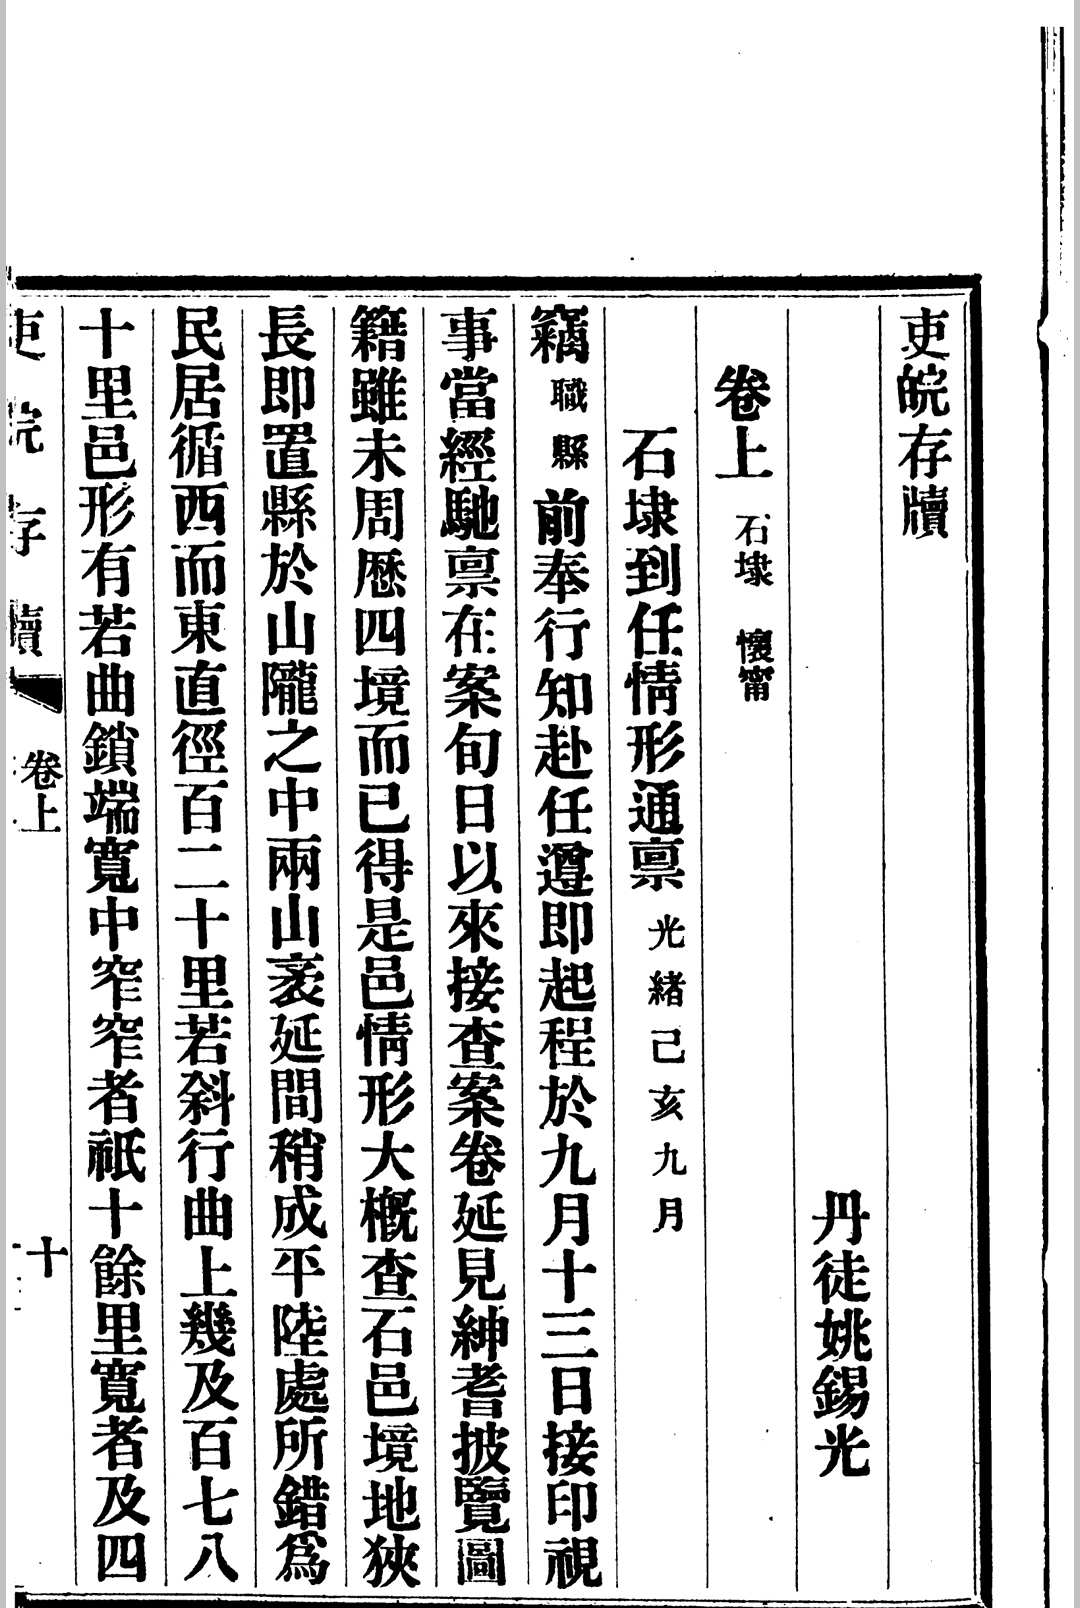 吏皖存牘
丹徒姚錫光
卷上 石埭 懷甯
石埭到任情形通禀 光緒己亥九月
竊職縣前奉行知赴任遵即起程於九月十三日接印視
事當經馳禀在案旬日以來接查案卷延見紳耆披覽圖
籍雖未周厯四境而已得是邑情形大概查石邑境地狹
長即置縣於山隴之中兩山袤延間稍成平陸處所錯爲
民居循西而東直徑百二十里若斜行曲上幾及百七八
十里邑形有若曲鎖端寬中窄窄者祇十餘里寬者及四
吏皖存牘 卷上 十